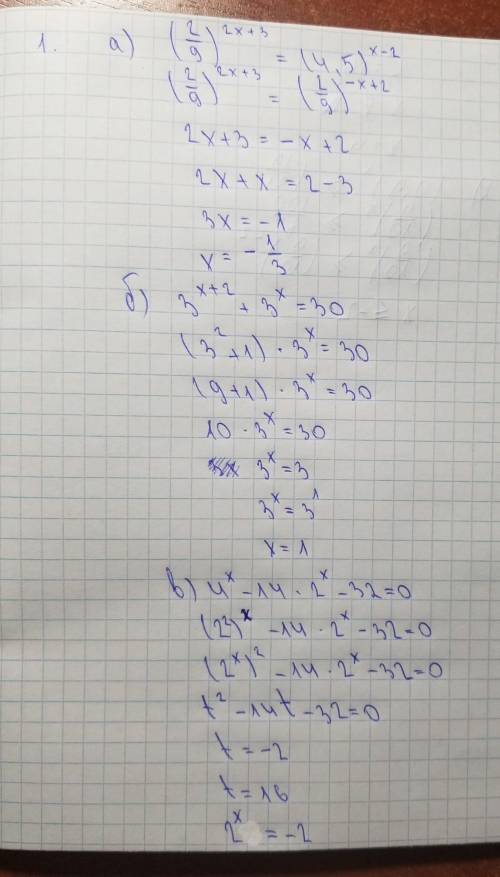 1. а) (2/9)^(2x+3) = (4,5)^(x-2)
(2/9)^(2x+3) = (2/9)^(-x+2)
2x+3 = -x+2
2x+x = 2-3
3x = -1
x = -1/3
б) 3^(x+2) + 3^x = 30
(3^2+1) · 3^x = 30
(9+1) · 3^x = 30
10 · 3^x = 30
3^x = 3
3^x = 3^1
x = 1
в) 4^x - 14 · 2^x - 32 = 0
(2^2)^x - 14 · 2^x - 32 = 0
(2^x)^2 - 14 · 2^x - 32 = 0
t^2 - 14t - 32 = 0
t = -2
t = 16
2^x = -2